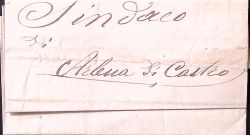 Sindaco
di
Arlena di Castro